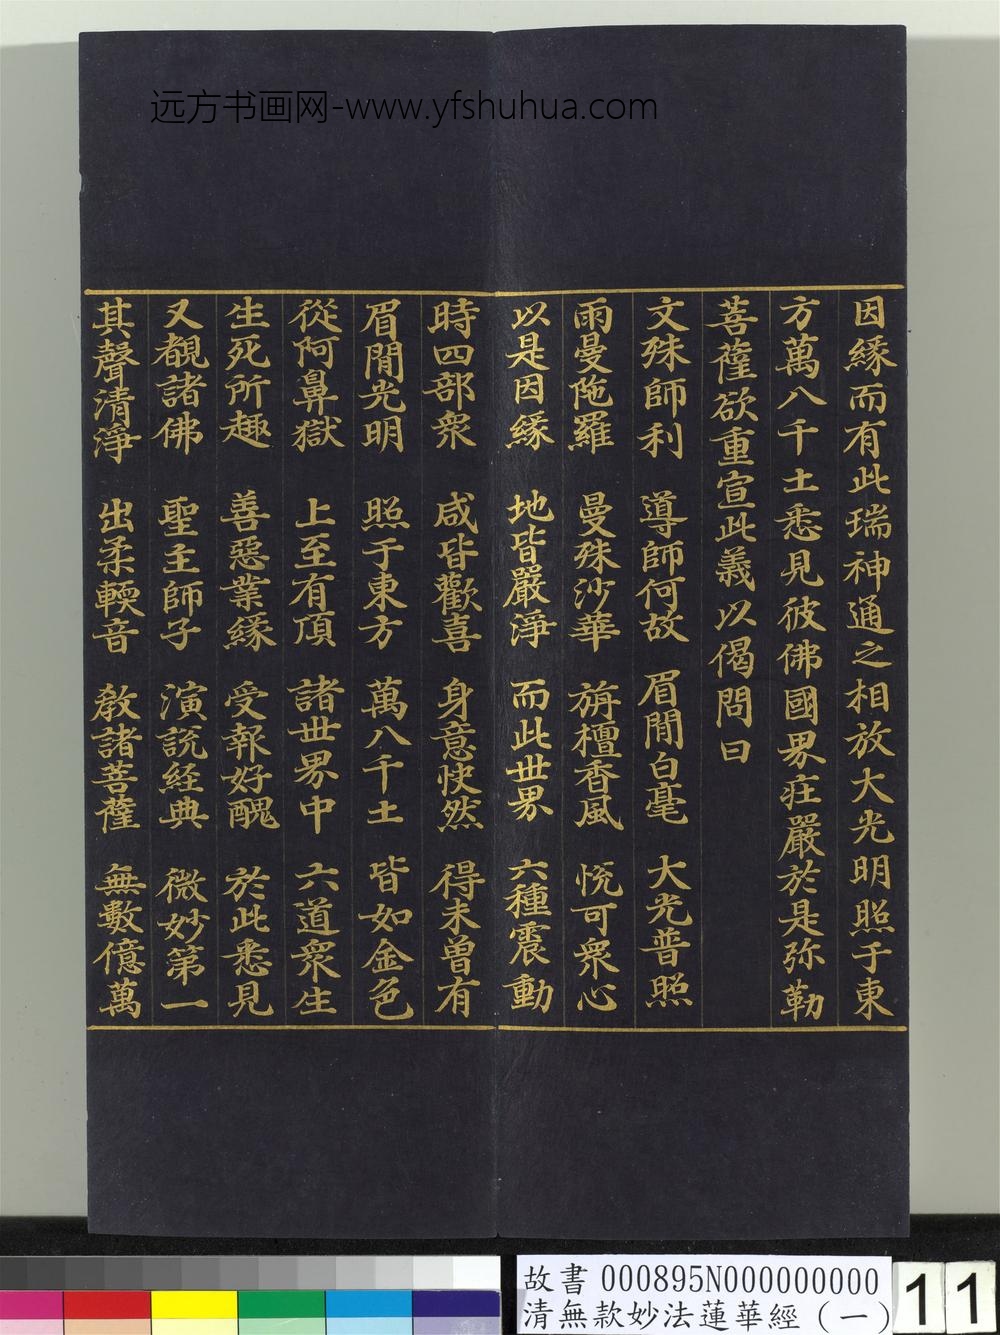 远方书画网-www.yfshuhua.com
因緣而有此瑞神通之相放大光明照于東
方萬八千土悉見彼佛國界莊嚴於是弥勒
菩薩欲重宣此義以偈問曰
文殊師利 導師何故 眉間白毫 大光普照
雨曼陁羅 曼殊沙華 旃檀香風 悅可衆心
以是因緣 地皆嚴淨 而此世界 六種震動
時四部衆 咸皆歡喜 身意快然 得未曾有
眉間光明 照于東方 萬八千土 皆如金色
從阿鼻獄 上至有頂 諸世界中 六道衆生
生死所趣 善惡業緣 受報好醜 於此悉見
又覩諸佛 聖主師子 演說經典 微妙第一
其聲清淨 出柔輭音 教諸菩薩 無數億萬
故書 000895N000000000
清無款妙法蓮華經(一)
11